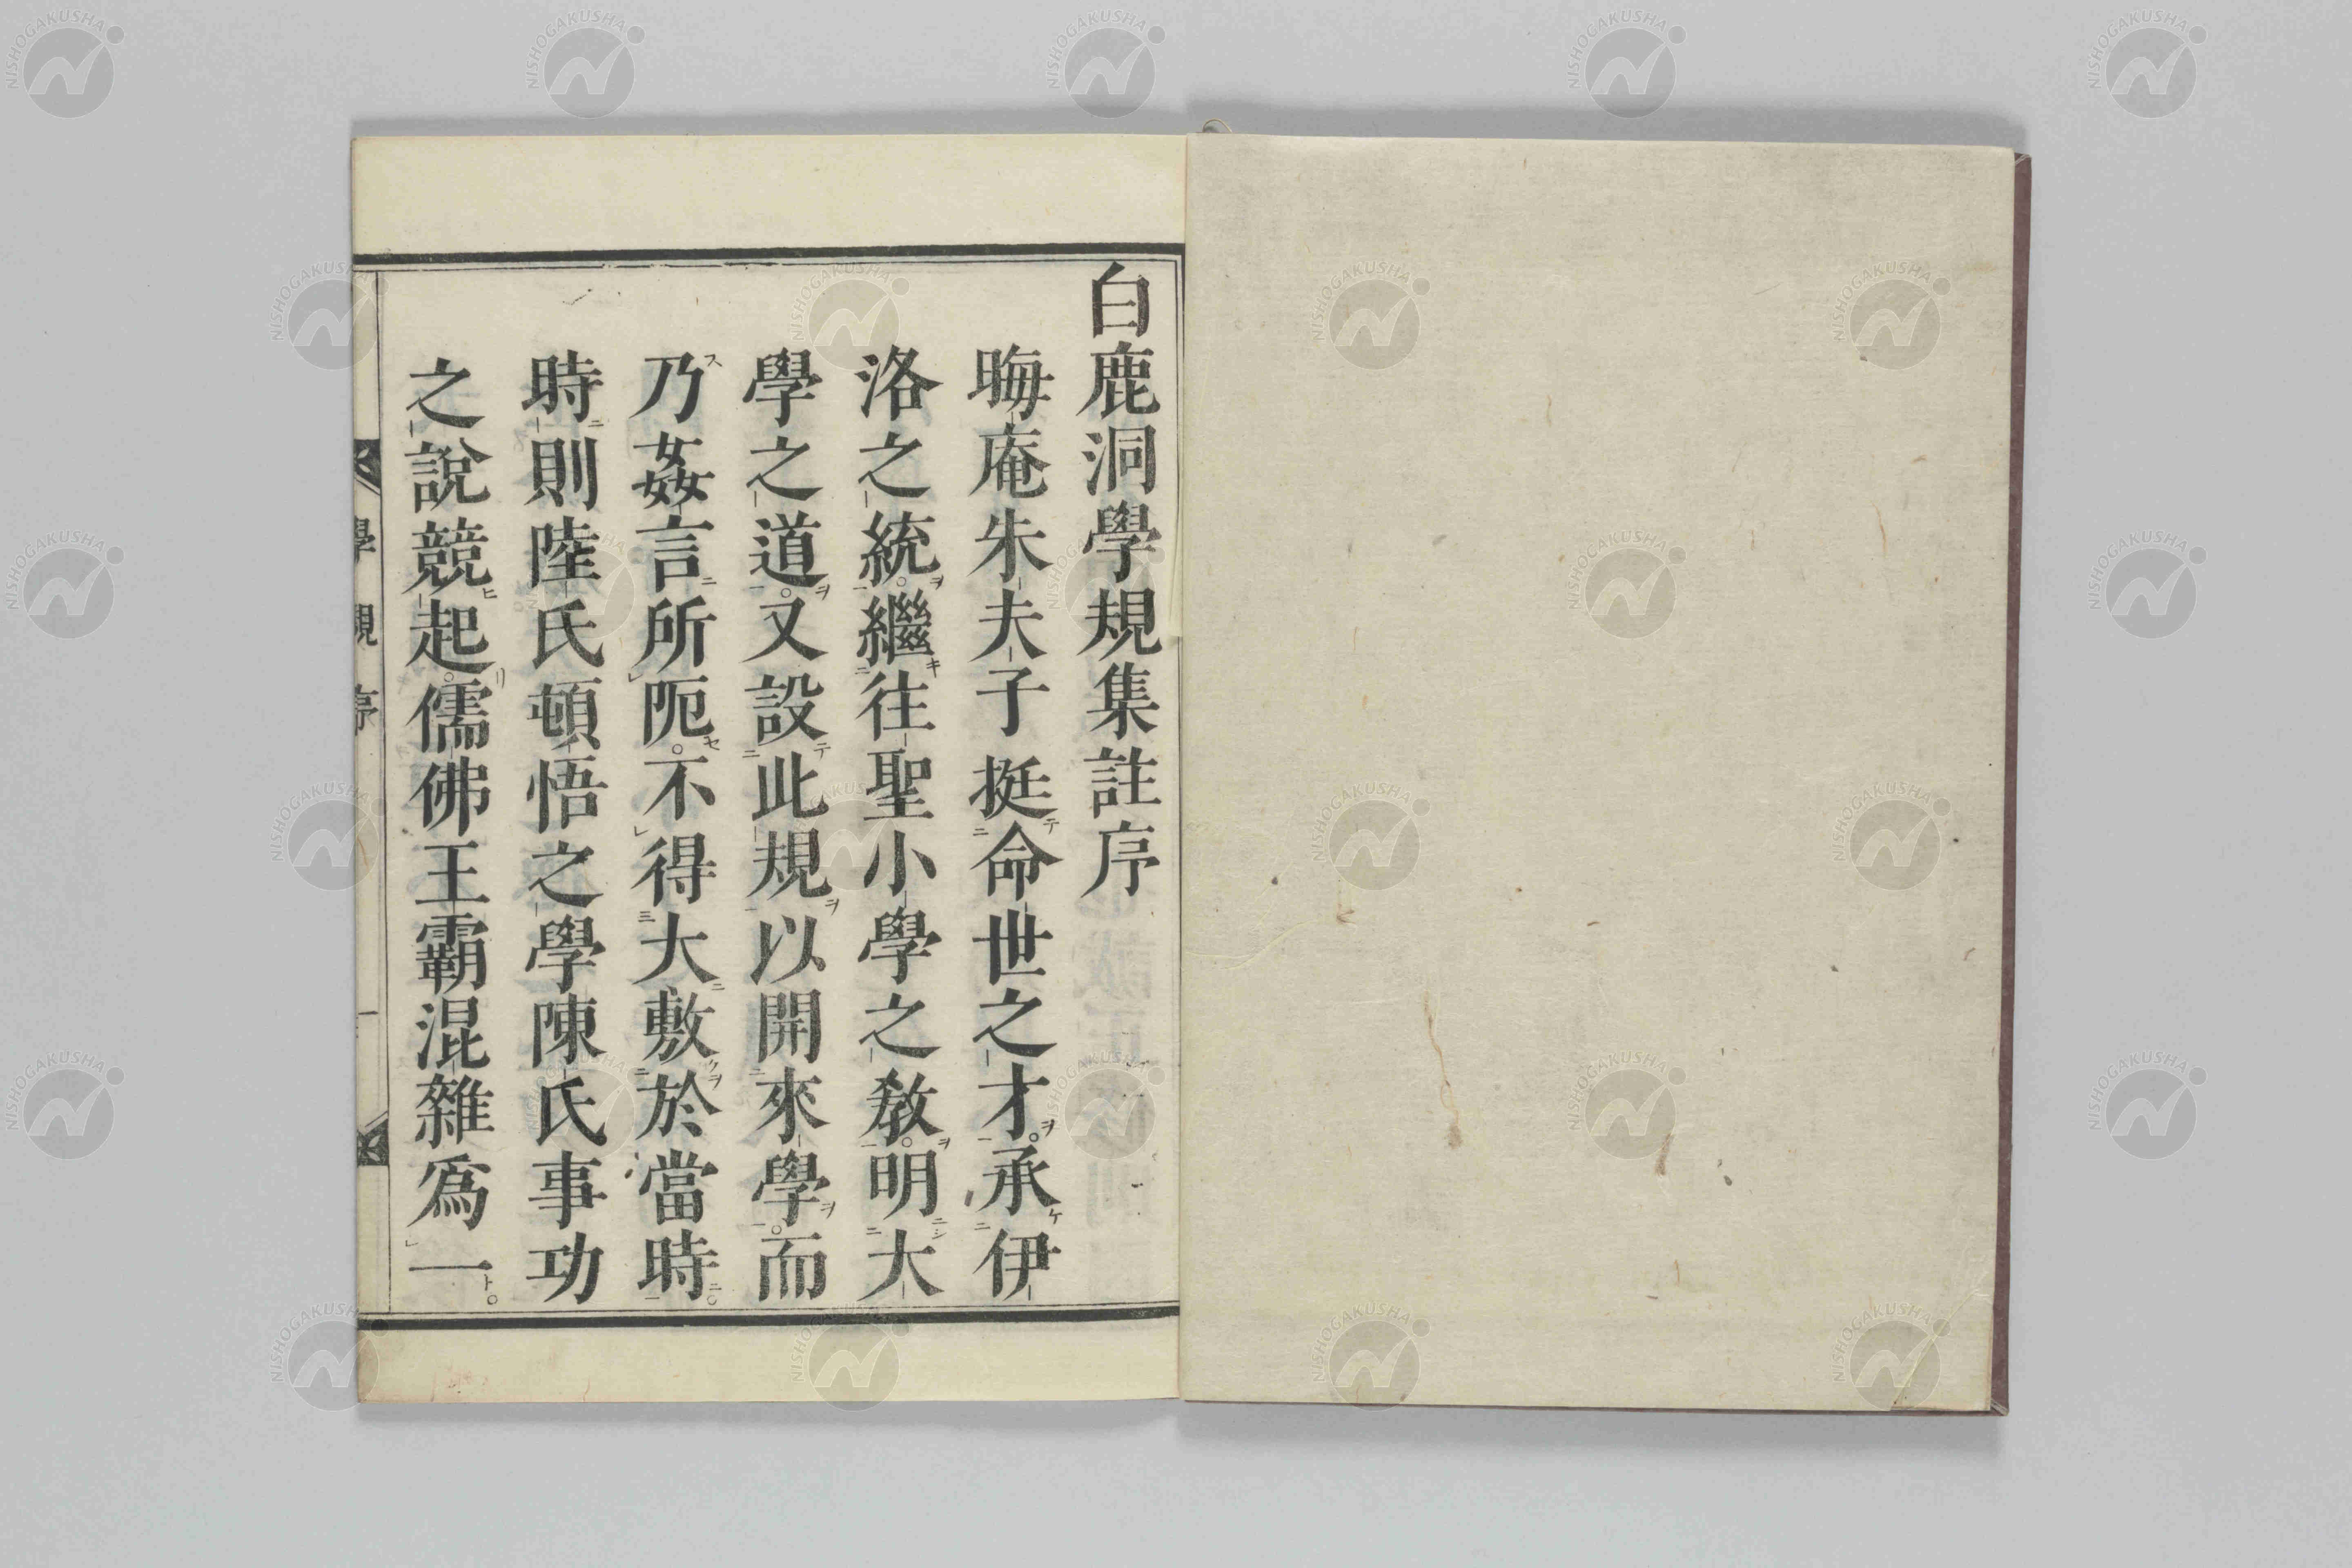 白鹿洞學規集註序
晦庵朱夫子挺命世之才承伊
洛之統繼往聖小學之敎明大
學之道又設此規以開來學而
乃姦言所阨不得大敷於當時
時則陸氏頓悟之學陳氏事功
之說競起儒佛王霸混雜爲一
學規序
一
NISHOGAKUSHA